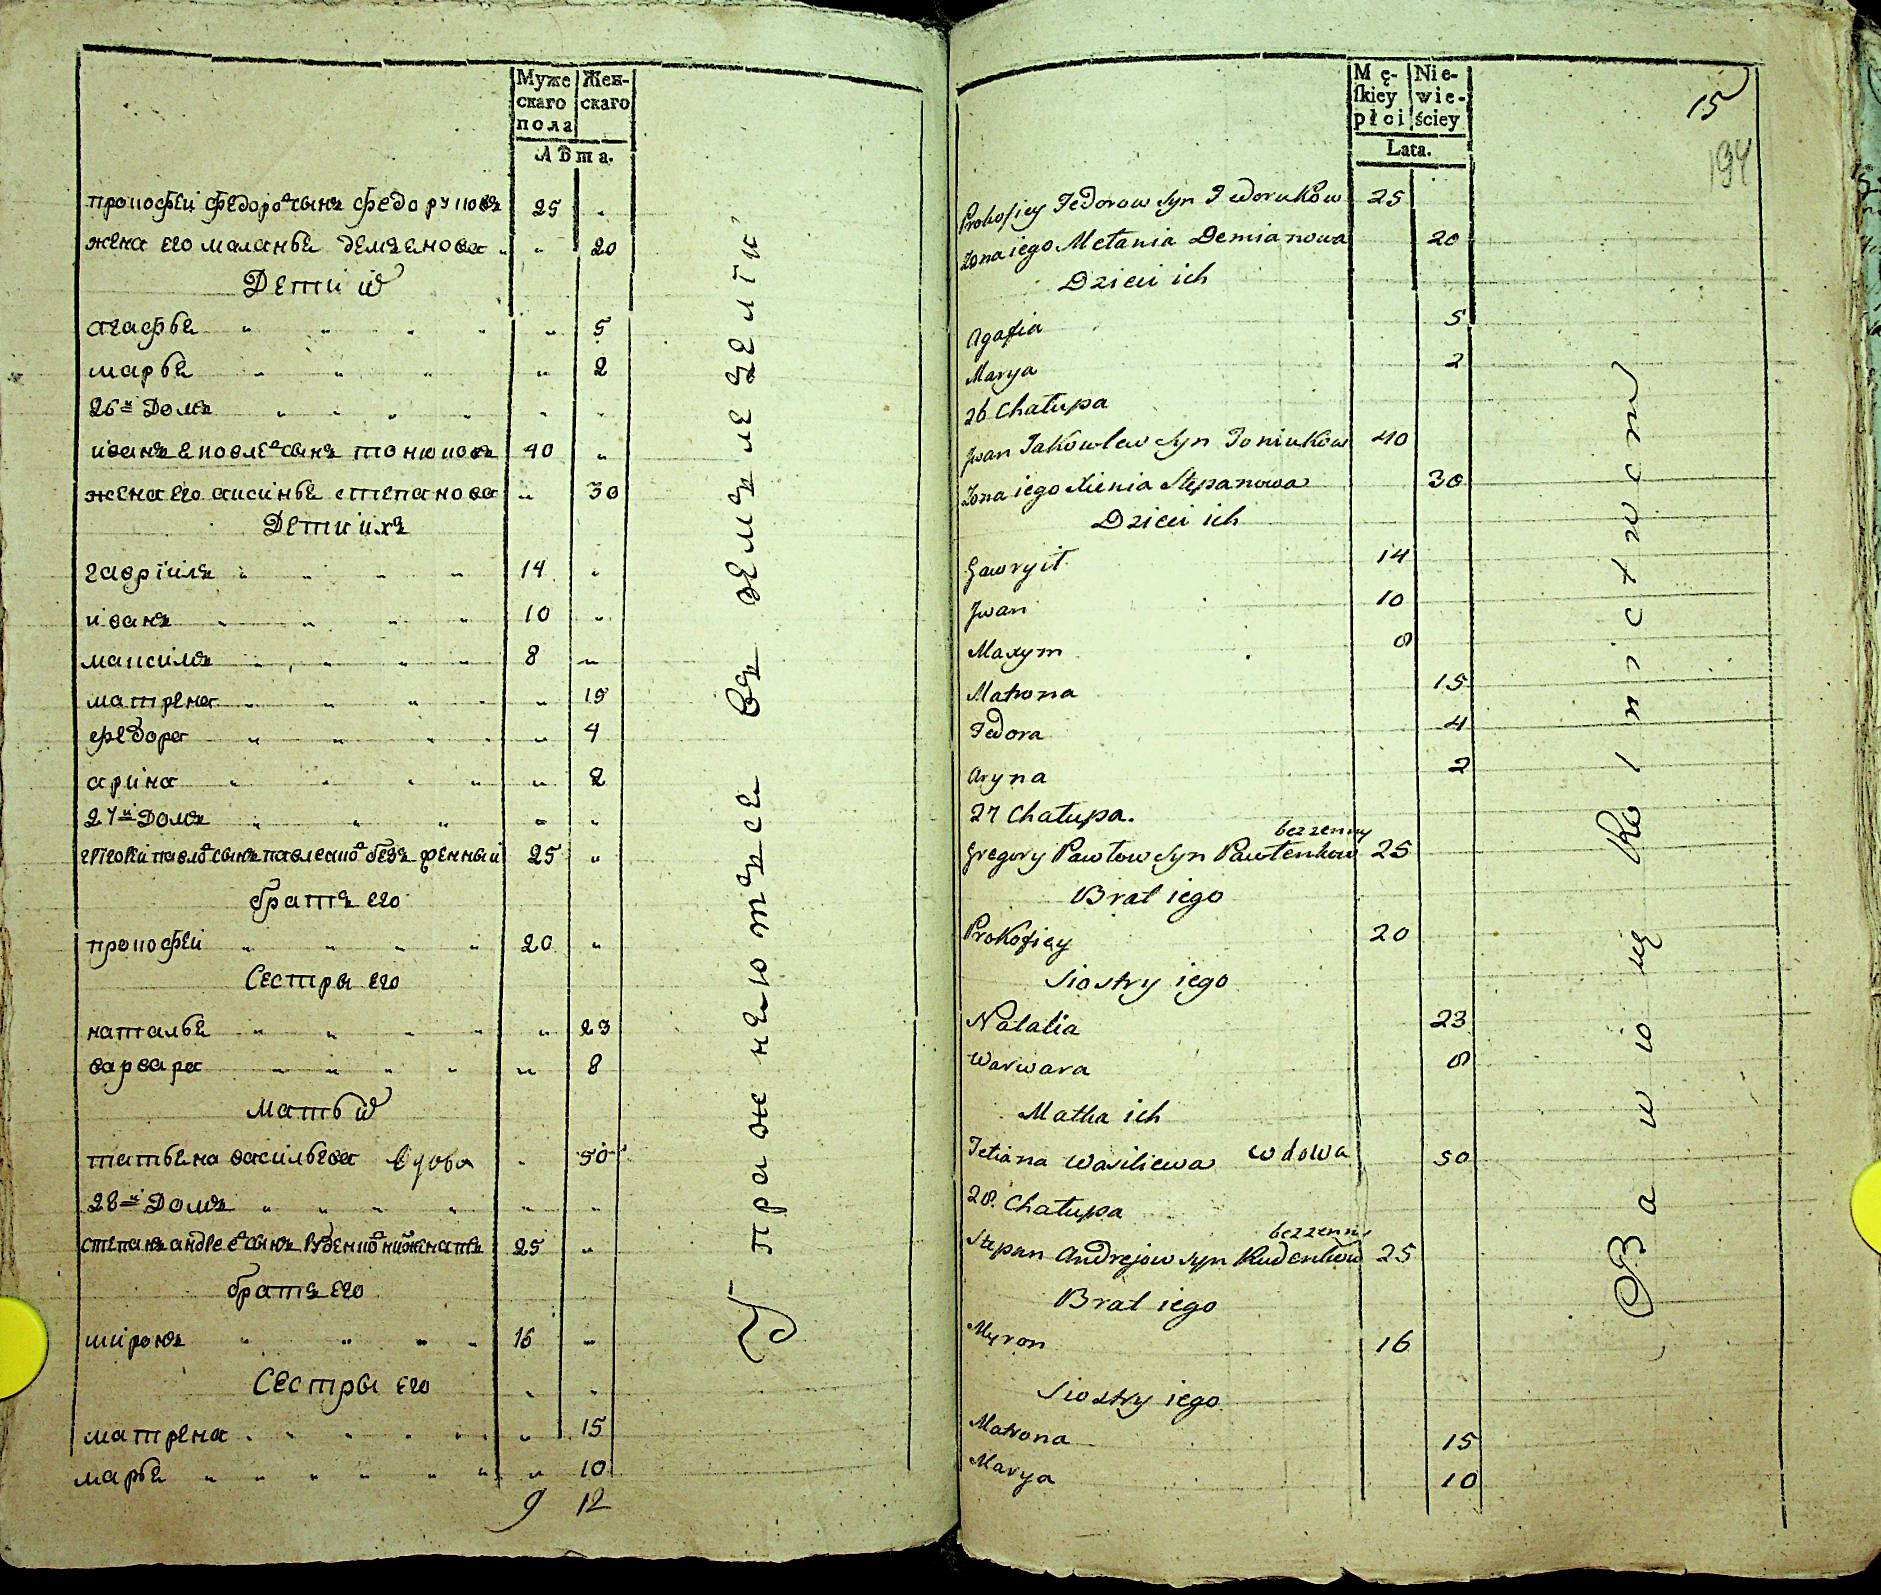 Муже Жен-
скаго скаго
пола
Лѣта.
прокофеи федоро҃ сынъ федоруковъ 25 „
жена его маланья демьенова „ 20
Дети их
агафья „ 5
марья „ 2
26й Домъ
иванъ яковле҃ сынъ тонюковъ 40 „
жена его аксинья степанова „ 30
Дети ихъ
гаврїилъ 14 „
иванъ 10 „
максимъ 8 „
матрена „ 15
федора „ 4
арина „ 2
27й Домъ
григореи павло҃ сынъ павленко҃ безъ женный 25 „
братъ его
прокофеи 20 „
Сестры его
наталья „ 23
варвара „ 8
Мать их
татьяна васильева вдова „ 50
28й Домъ
степанъ андрее҃ сынъ руденко҃ нижонатъ 25 „
братъ его
миронъ 16 „
Сестры его
матрена „ 15
марья „ 10
9 12
Упражнеютъся въ земъледелїи
15
194
Mę- Nie-
ſkiey wie-
płci ściey
Lata.
Prokofiey Fedorow syn Fedorukow 25
Żona iego Melania Demianowa 20
Dzieci ich
Agafia 5
Marya 2
26 Chałupa
Jwan Jakowlew syn Toniukow 40
Żona iego Xienia Stepanowa 30
Dzieci ich
Gawryił 14
Jwan 10
Maxym 8
Matrona 15
Fedora 4
Aryna 2
27 Chałupa.
bezzenny
Gregory Pawłow syn Pawłenkow 25
Brat iego
Prokofiey 20
Siostry iego
Natalia 23
Warwara 8
Matka ich
Tetiana Wasiliewa wdowa 50
28. Chałupa
bezzenny
Stepan Andrejow syn Rudenkow 25
Brat iego
Myron 16
Siostry iego
Matrona 15
Marya 10
Bawią się Rolnictwem